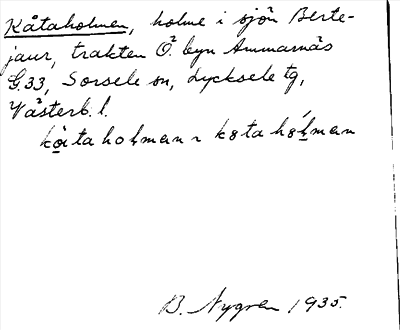 Kåtaholmen, holme i sjön Berte-
jaur, trakten Ö. byn Ammarnäs
G.33, Sorsele sn, Lycksele tg,
Västerb. l.
B. Nygren 1935.